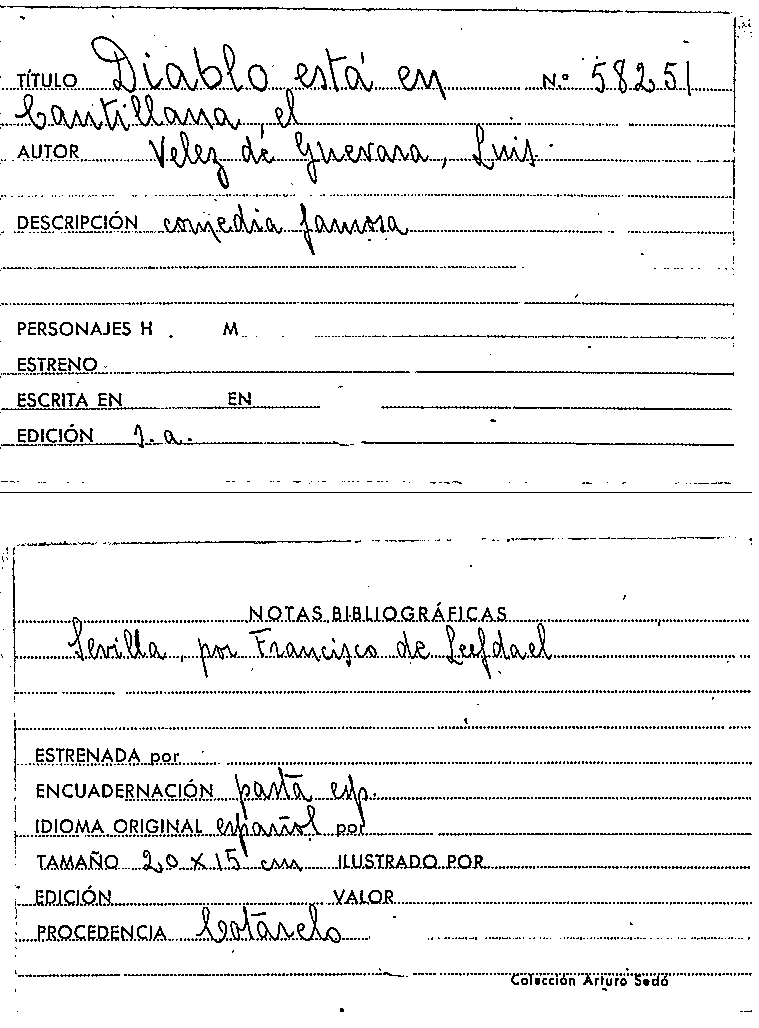 TÍTULO Diablo está en N.º 58251
Cantillana, el
AUTOR Velez de Guevara, Luis
DESCRIPCIÓN comedia famosa
PERSONAJES H M
ESTRENO
ESCRITA EN EN
EDICIÓN s.a.
NOTAS BIBLIOGRÁFICAS
Sevilla, por Francisco de Leefdael
ESTRENADA por
ENCUADERNACIÓN pasta esp.
IDIOMA ORIGINAL español por
TAMAÑO 20 x 15 cm ILUSTRADO POR
EDICIÓN VALOR
PROCEDENCIA Cotarelo
Colección Arturo Sedó